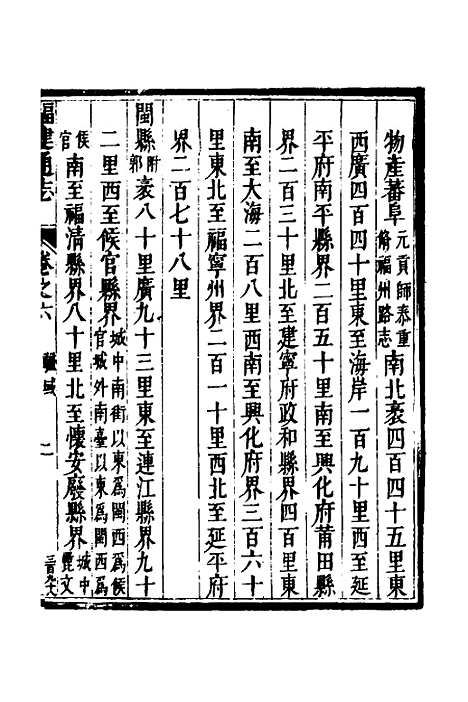 物產蕃阜元貢師泰重脩福州路志南北袤四百四十五里東
西廣四百四十里東至海岸一百九十里西至延
平府南平縣界二百五十里南至興化府莆田縣
界二百三十里北至建寧府政和縣界四百里東
南至大海二百八里西南至興化府界三百六十
里東北至福寧州界二百一十里西北至延平府
界二百七十八里
閩縣附郭袤八十里廣九十三里東至連江縣界九十
二里西至候官縣界城中南街以東為閩西為候官城外南臺以東為閩西為
候官南至福清縣界八十里北至懷安廢縣界城中
福建通志
卷之六
疆域
二